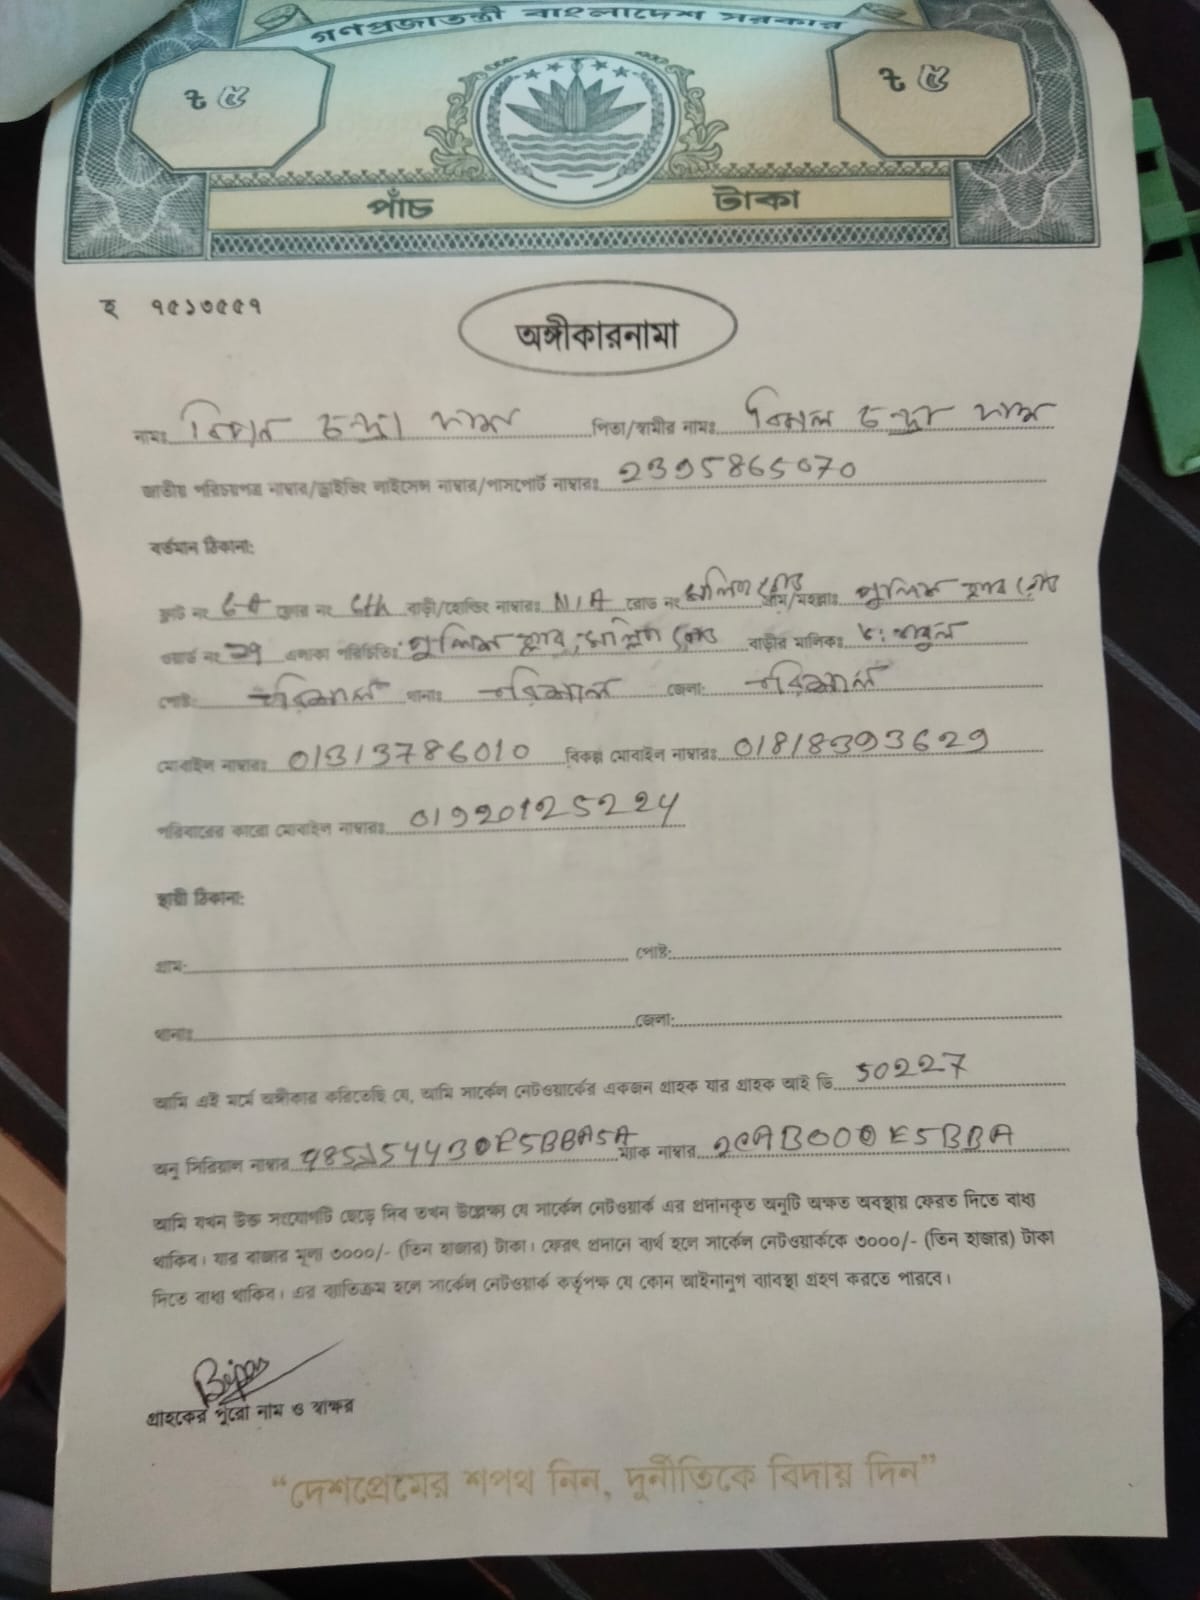 গণপ্রজাতন্ত্রী বাংলাদেশ সরকার
ট ৫ ট ৫
পাঁচ টাকা
হ ৭৫১৩৫৫৭
অঙ্গীকারনামা
নামঃ চন্দ্র দাস পিতা/স্বামীর নামঃ বিমল চন্দ্র দাস
জাতীয় পরিচয়পত্র নাম্বার/ড্রাইভিং লাইসেন্স নাম্বার/পাসপোর্ট নাম্বারঃ 2395865070
বর্তমান ঠিকানা:
ফ্লাট নং 6-A ফ্লোর নং 6th বাড়ী/হোল্ডিং নাম্বারঃ N/A রোড নং গ্রাম/মহল্লাঃ পুলিশ ক্লাব রোড
ওয়ার্ড নং এলাকা পরিচিতি: পুলিশ ক্লাব, রোড বাড়ীর মালিকঃ
পোষ্ট: বরিশাল থানাঃ বরিশাল জেলা: বরিশাল
মোবাইল নাম্বারঃ 01313786010 বিকল্প মোবাইল নাম্বারঃ 01818393629
পরিবারের কারো মোবাইল নাম্বারঃ 01920125224
স্থায়ী ঠিকানা:
গ্রাম: পোষ্ট:
থানাঃ জেলা:
আমি এই মর্মে অঙ্গীকার করিতেছি যে, আমি সার্কেল নেটওয়ার্কের একজন গ্রাহক যার গ্রাহক আই ডি 50227
অনু সিরিয়াল নাম্বার ম্যাক নাম্বার
আমি যখন উক্ত সংযোগটি ছেড়ে দিব তখন উল্লেক্ষ্য যে সার্কেল নেটওয়ার্ক এর প্রদানকৃত অনুটি অক্ষত অবস্থায় ফেরত দিতে বাধ্য
থাকিব। যার বাজার মূল্য ৩০০০/- (তিন হাজার) টাকা। ফেরৎ প্রদানে ব্যর্থ হলে সার্কেল নেটওয়ার্ককে ৩০০০/- (তিন হাজার) টাকা
দিতে বাধ্য থাকিব। এর ব্যতিক্রম হলে সার্কেল নেটওয়ার্ক কর্তৃপক্ষ যে কোন আইনানুগ ব্যাবস্থা গ্রহণ করতে পারবে।
গ্রাহকের পুরো নাম ও স্বাক্ষর
“দেশপ্রেমের শপথ নিন, দুর্নীতিকে বিদায় দিন”